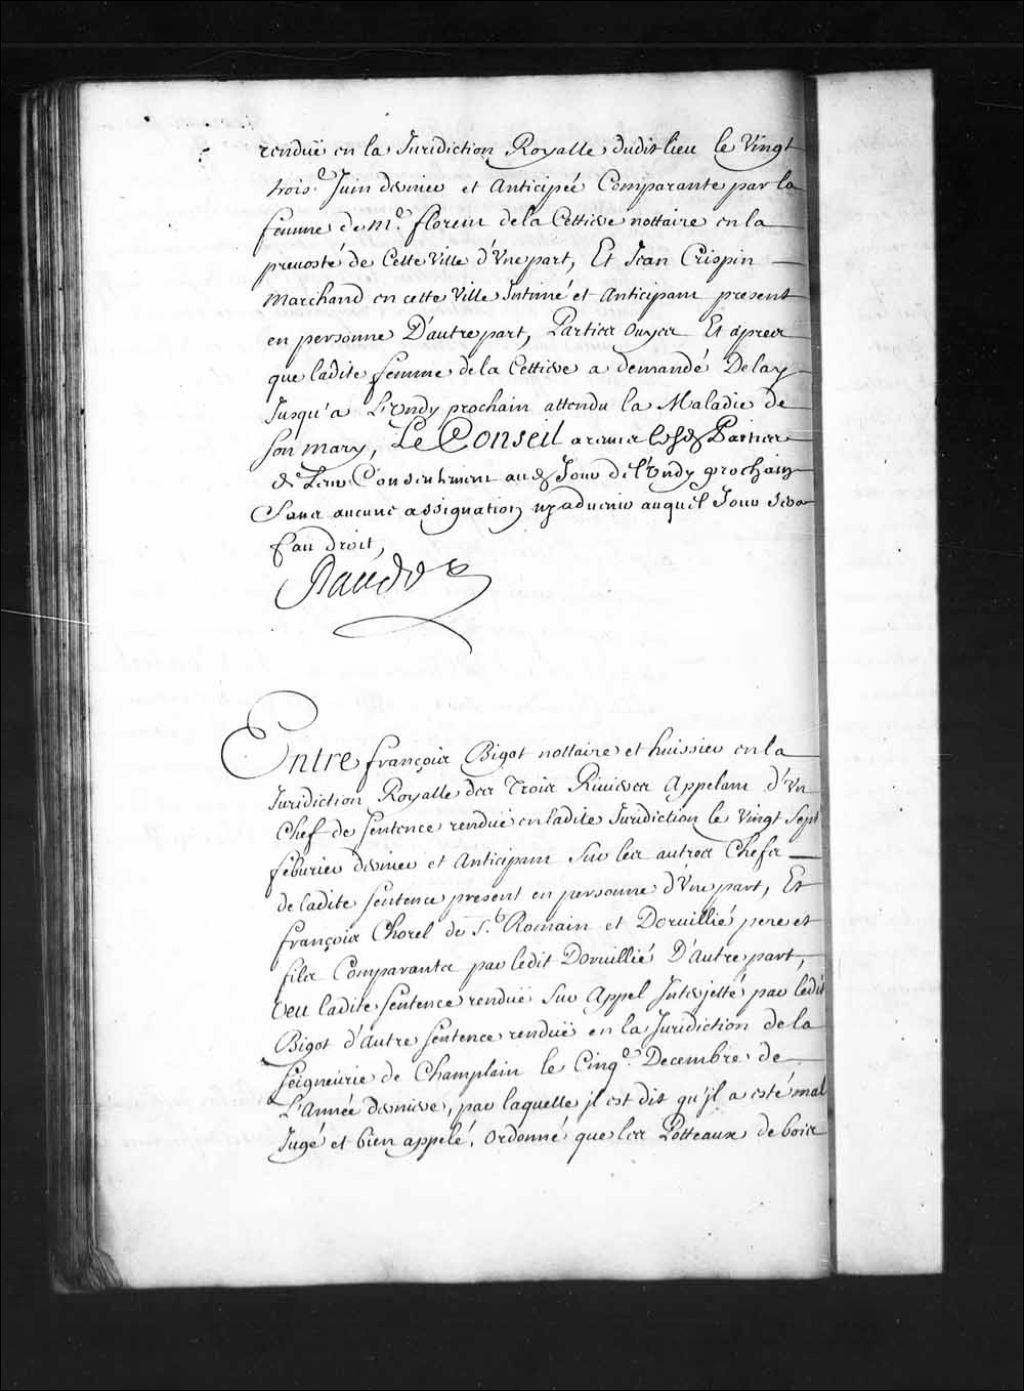 renduë en la Juridiction Royalle dudit lieu le Vingt
trois.e Juin dernier et Anticipée Comparante par la
femme de Me. florent dela Cettiere nottaire en la
preuosté de Cette Ville d'Vne part, Et Jean Crispin
Marchand en cette Ville Intimé et Anticipant present
en personne D'autre part, Parties ouyes Et apres
que ladite femme de la Cettiere a demandé Delay
Jusqu'a L'undy prochain attendu la Maladie de
son mary, Le Conseil a remis les Parties
de Leur Consentement aud Jour de l'Vndy prochain
Sans aucune assignation ny aduenir auquel Jour sera
fait droit,
Entre françois Bigot nottaire et huissier en la
Juridiction Royalle des Trois Riuieres Appelant d'Vn
Chef de sentence renduë en ladite Juridiction le Vingt Sept
feburier dernier et Anticipant Sur les autres Chefs
de ladite sentence present en personne d'Vne part, Et
françois Chorel de St. Romain et Doruillié pere et
fils Comparants par ledit Doruillié D'Autre part,
Veu ladite sentence renduë Sur Appel Interjetté par ledit
Bigot d'Autre sentence renduë en la Juridiction de la
Seigneurie de Champlain le Cinq.e Decembre de
L'Année derniere, par laquelle jl est dit qu'jl a esté mal
Jugé et bien appelé, ordonné que les Potteaux de bois